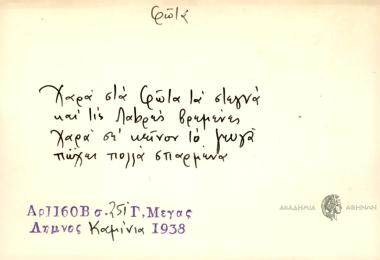 Φῶτα
Χαρά στά Φῶτα τά στεγνά
καί τίς Λαμπρές βρεμένες
Χαρά σ' κεῖνον τό ζευγᾶ
πὤχει πολλά σπαρμένα
Αρ 1160Β σ. 251 Γ, Μεγας
Λημνος Καμίνια 1938
ΑΚΑΔΗΜΙΑ ΑΘΗΝΩΝ